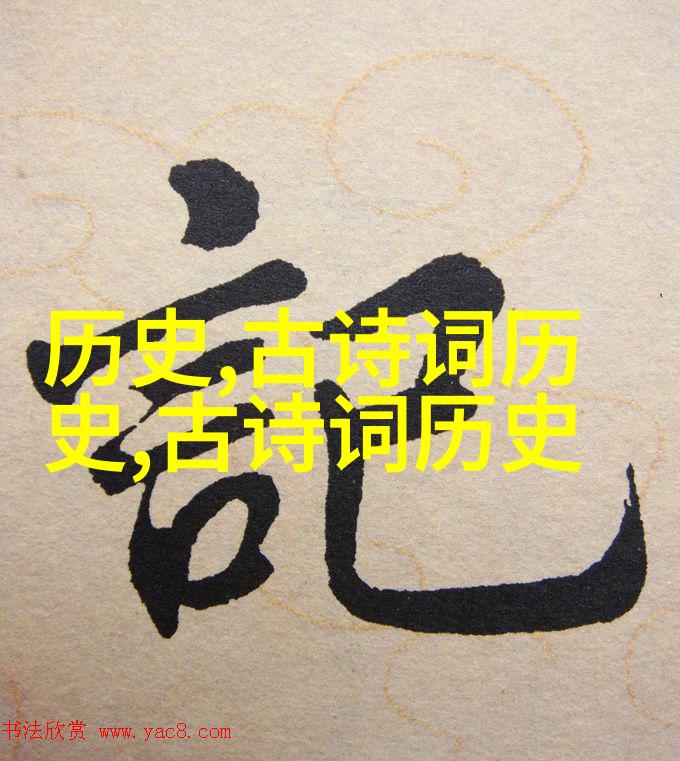 記
历史,古诗词历
史,古诗词历史
书法欣赏 www.yac8.com